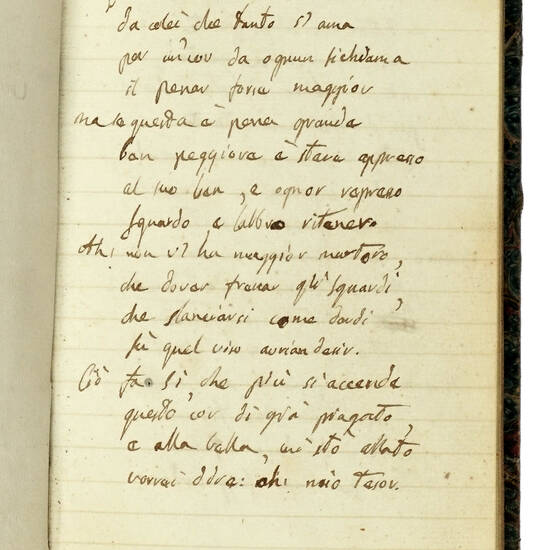 da colei che tanto si ama
per un cor da ognun si chiama
il penar forse maggior
ma se questa è pena grande
ben peggiore è stare appresso
al suo ben, e ognor represso
sguardo e labbro ritener
Ah, non vi ha maggior martoro,
che dover frenar gli sguardi,
che slanciarsi come dardi
su quel viso avrian desir.
Ciò fa sì che più si accende
questo cor di già piagato,
e alla bella, cui sto allato
vorrei dire: ah mio tesor.